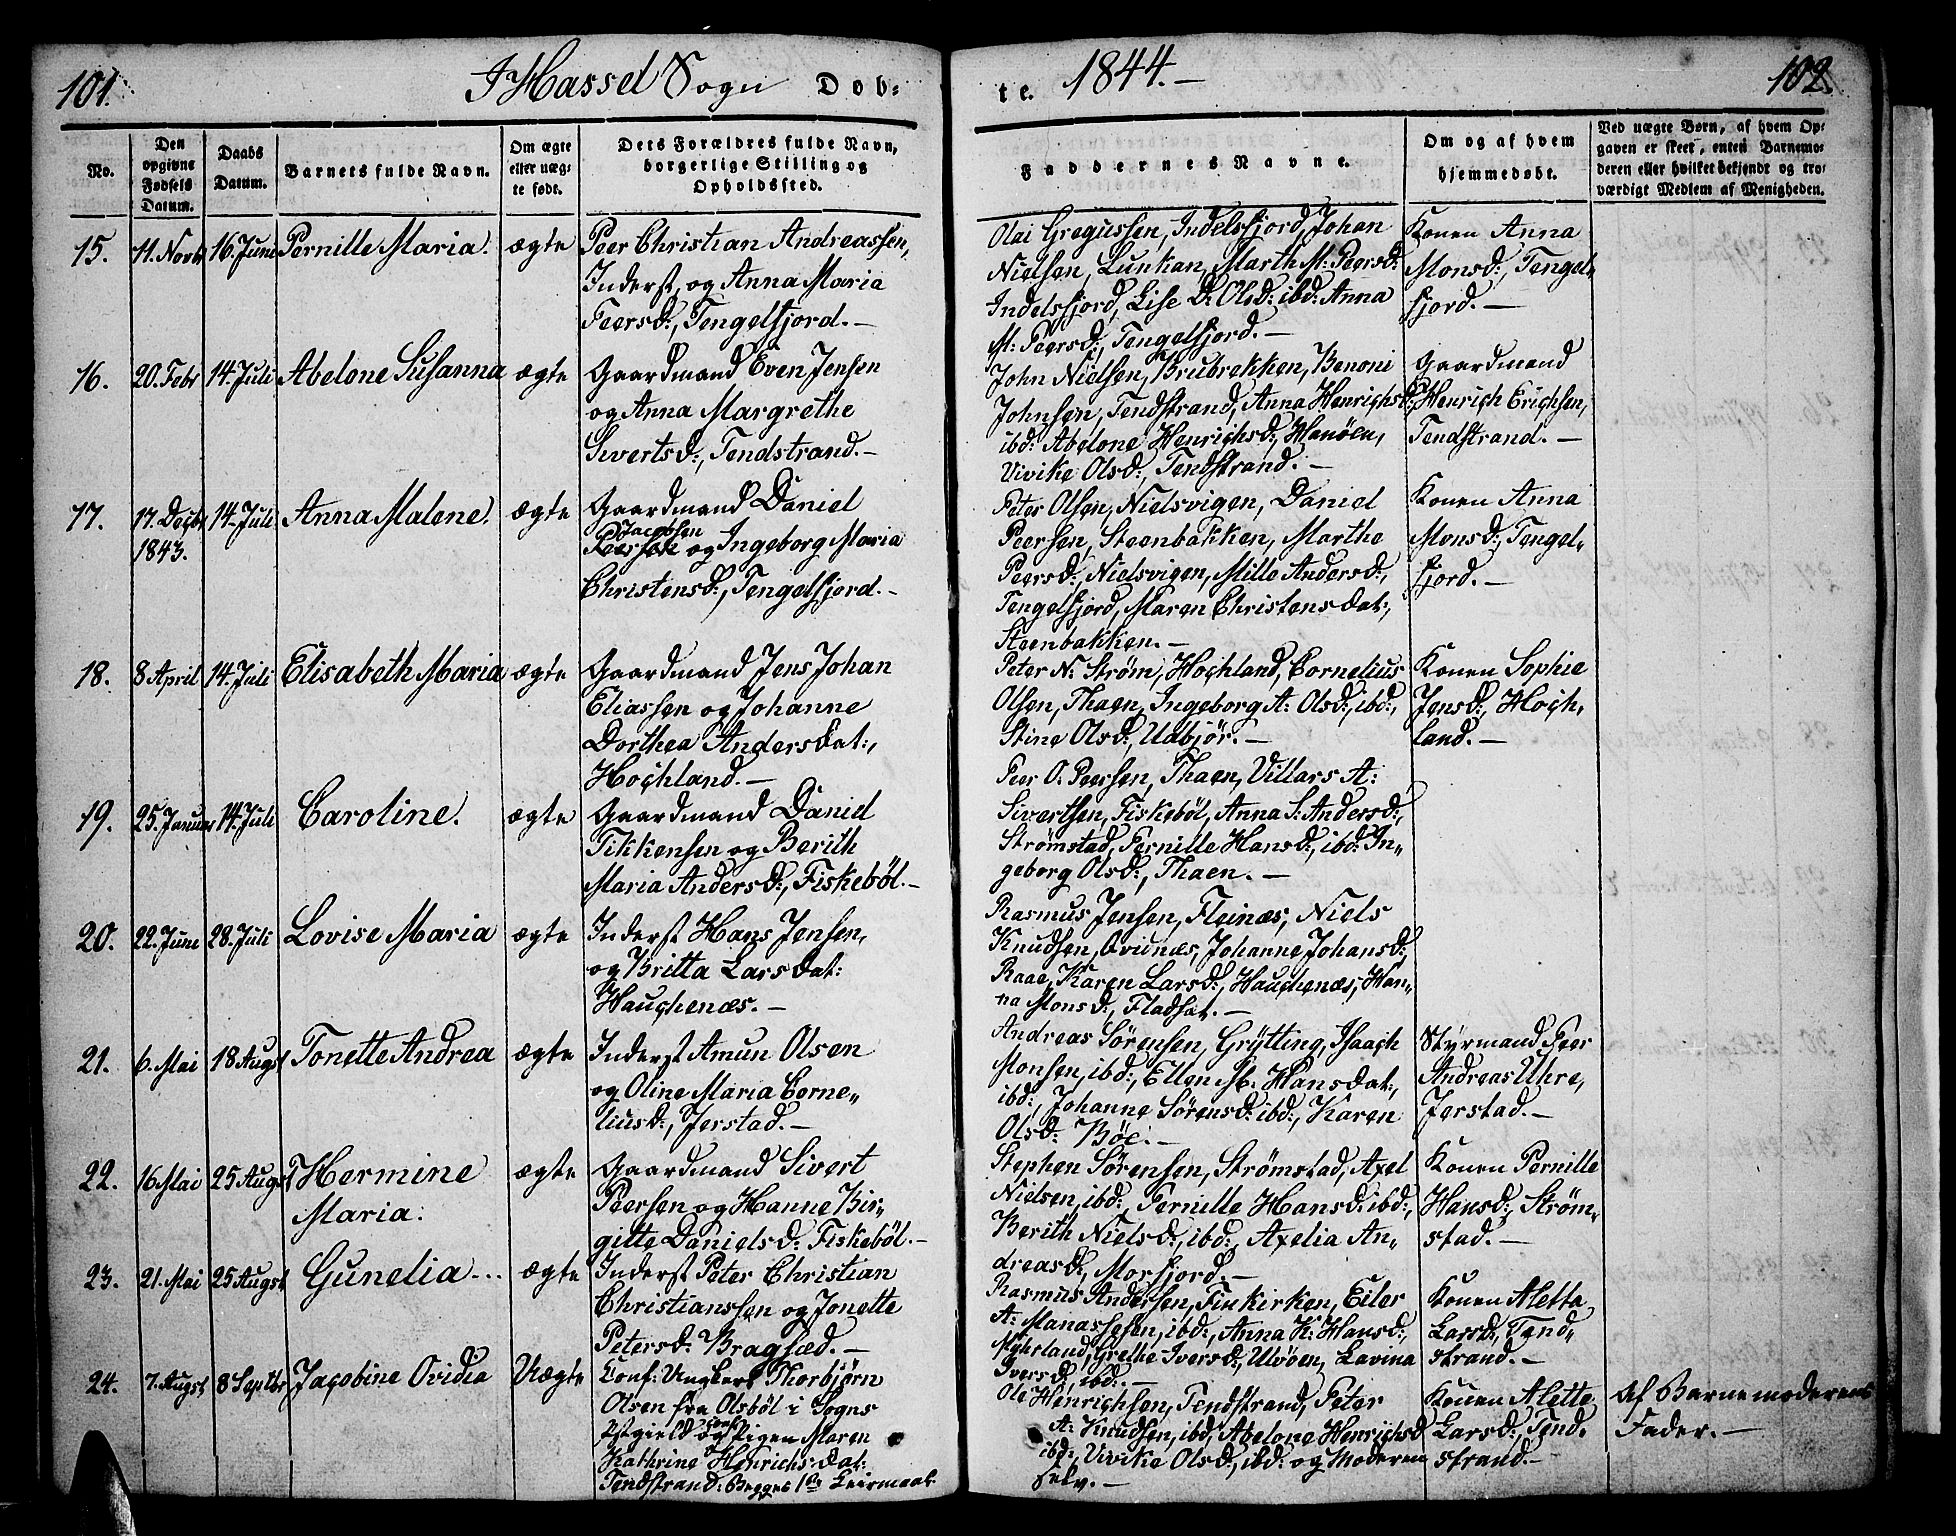 101.
I Hassel Sogn Døb-
te. 1844.—
102.
No.
Den opgivne Fødsels Datum.
Daabs Datum.
Barnets fulde Navn.
Om ægte eller uægte født.
Dets Forældres fulde Navn, borgerlige Stilling og Opholdssted.
Faddernes Navne.
Om og af hvem hjemmedøbt.
Ved uægte Børn, af hvem Opgaven er skeet, enten Barnemoderen eller hvilket bekjendt og troværdigt Medlem af Menigheden.
15. 11. Novb 16. Juni Pernille Maria. ægte
Peer Christian Andreassen,
Inderst, og Anna Maria
Peersd:, Tengelfjord.—
Olai Gregussen, Indelsfjord, Johan
Nielsen, Lunkan, Marth M: Peersd:
Indelsfjord, Lise D: Olsd: ibd: Anna
M: Peersd:, Tengelfjord.—
Konen Anna
Monsd:, Tengel-
fjord.—
16. 20. Febr 14. Juli Abelone Susanna ægte
Gaardmand Even Jensen
og Anna Margrethe
Sivertsd:, Tendstrand.—
John Nielsen, Brubrekken, Benoni
Johnsen, Tendstrand, Anna Henrichsd:,
ibd: Abelone Henrichsd:, Hanøen,
Vivike Olsd:, Tendstrand.—
Gaardmand
Henrich Erichsen,
Tendstrand.—
17. 17. Decbr 14. Juli Anna Malene. ægte
1843.
Gaardmand Daniel
Jacobsen
Peersen og Ingeborg Maria
Christensd:, Tengelfjord.—
Peter Olsen, Nielsvigen, Daniel
Peersen, Steenbakken, Marthe
Peersd:, Nielsvigen, Mille Andersd:,
Tengelfjord, Maren Christensdat:,
Steenbakken.—
Konen Anna
Monsd:, Tengel-
fjord.—
18. 8 April 14. Juli Elisabeth Maria ægte
Gaardmand Jens Johan
Eliassen og Johanne
Dorthea Andersdat:,
Hochland.—
Peter N. Strøm, Hochland, Cornelius
Olsen, Thaen, Ingeborg A: Olsd:, ibd:,
Stine Olsd:, Udbjør.—
Konen Sophie
Jensd:, Hoch-
land.—
19. 25. Januar 14. Juli Caroline. ægte
Gaardmand Daniel
Tikkensen og Berith
Maria Andersd:, Fiskebøl.—
Peer O. Peersen, Thaen, Villars A:
Sivertsen, Fiskebøl, Anna S: Andersd:,
Strømstad, Pernille Hansd:, ibd: In-
geborg Olsd:, Thaen.—
20. 22. June 28. Juli Lovise Maria ægte
Inderst Hans Jensen,
og Britta Larsdat:
Hauchenæs.—
Rasmus Jensen, Fleinæs, Niels
Knudsen, Qvinæs, Johanne Johansd:,
Raae, Karen Larsd:, Hauchenæs, Han-
na Monsd:, Fladsæt.—
21. 6. Mai 18 Augst Tonette Andrea ægte
Inderst Amun Olsen
og Oline Maria Corne-
liusd:, Jerstad.—
Andreas Sørensen, Grytting, Isaach
Monsen, ibd:, Ellen M: Hansdat:,
ibd:, Johanne Sørensd: ibd:, Karen
Olsd: Bøe.—
Styrmand Peer
Andreas Uhre,
Jerstad.—
22. 16 Mai 25 Augst Hermine
Maria. ægte
Gaardmand Sivert
Peersen og Hanne Bir-
gitte Danielsd: Fiskebøl.—
Stephen Sørensen, Strømstad, Axel
Nielsen, ibd:, Pernille Hansd: ibd:,
Berith Nielsd:, ibd:, Axelia An-
dreasd:, Morfjord.—
Konen Pernille
Hansd:, Strøm-
stad.—
23. 21. Mai 25 Augst Gunelia... ægte
Inderst Peter Christian
Christianssen og Jonette
Petersd: Bragsæd.—
Rasmus Andersen, Finkirken, Eiler
A: Manassesen, ibd:, Anna K: Hansd:,
Myhrland, Grethe Iversd:, Ulvøen, Lavina
Iversd:, ibd:.—
Konen Aletta
Larsd:, Tend-
strand.—
24. 7. Augst 8 Septbr Jacobine Ovidia Uægte
Conf: Ungkarl Thorbjørn
Olsen fra Olsbøl i Sogns
Pstgield og Conf: Pigen Maren
Kathrine Henrichsdat:
Tendstrand: Begges 1ste Leiermaal
Ole Henrichsen, Tendstrand, Peter
A: Knudsen, ibd, Abelone Henrichsd
ibd:, Vivike Olsd:, ibd: og Moderen
selv.—
Konen Alette
Larsd:, Tend-
strand.—
Af Barnemoderens
Fader.—